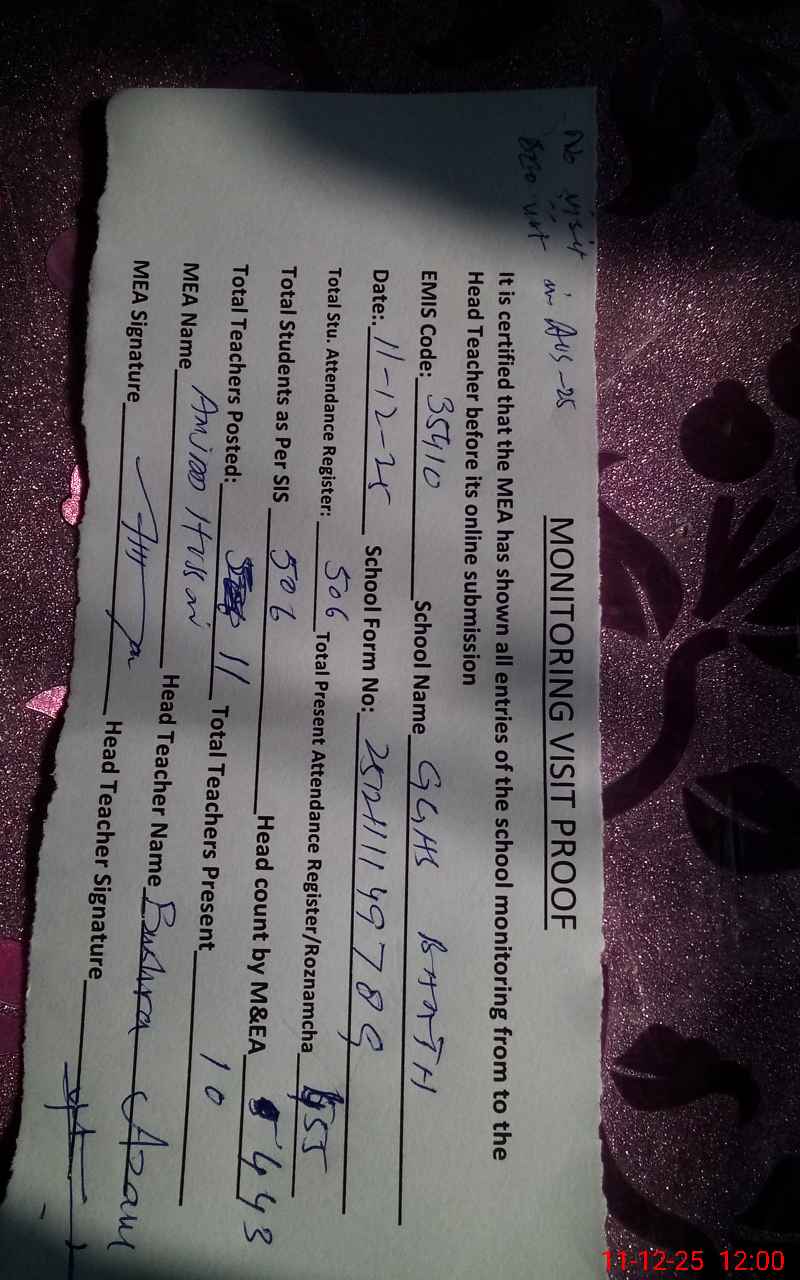 No visit in Aug-25
MONITORING VISIT PROOF
It is certified that the MEA has shown all entries of the school monitoring from to the
Head Teacher before its online submission
EMIS Code: 35410 School Name GGHS BHATH
Date:. 11-12-25 School Form No: 2512111149789
Total Stu. Attendance Register: 506 Total Present Attendance Register/Roznamcha 455
Total Students as Per SIS 506 Head count by M&EA 443
Total Teachers Posted: 11 Total Teachers Present 10
MEA Name Amjad Hussain Head Teacher Name Bushra Azam
MEA Signature Head Teacher Signature
11-12-25 12:00